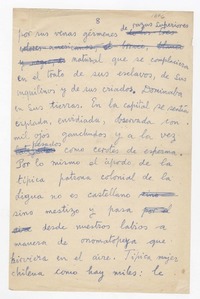 8
por sus venas gérmenes de razas superiores
natural que se complaciera
en el trato de sus esclavos, de sus
inquilinos y de sus criados. Dominaba
en sus tierras. En la capital, se sentía
espiada, envidiada, observada con
mil ojos ganchudos y a la vez
pesados como cerotes de esperma.
Por lo mismo el apodo de la
típica patrona colonial de la
Ligua no es castellano
sino mestizo y pasa
desde nuestros labios a
manera de onomatopeya que
hirviera en el aire. Típica mujer
chilena como hay miles: le